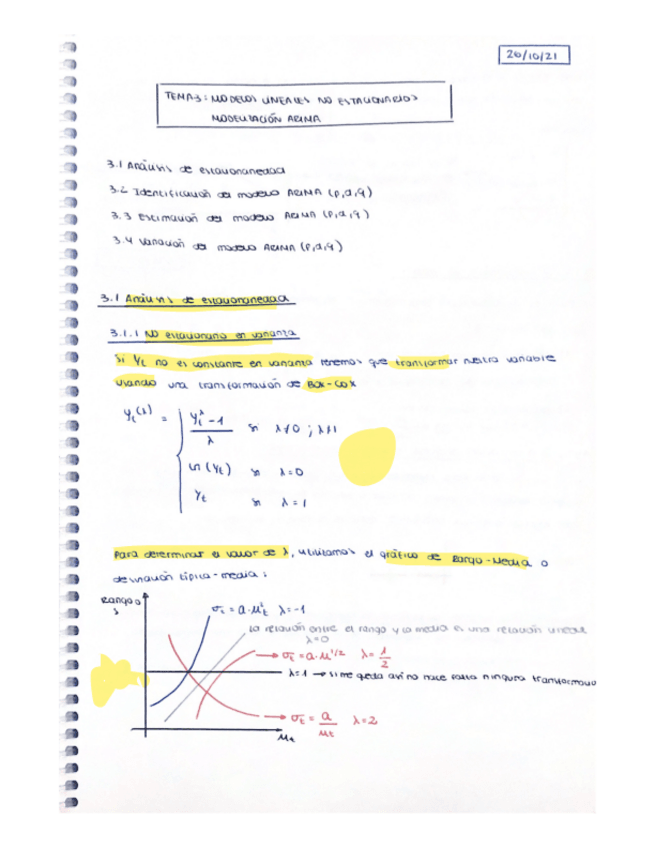 20/10/21
TEMA 3: MODELOS LINEALES NO ESTACIONARIOS
MODELIZACIÓN ARIMA
3.1 Análisis de estacionariedad
3.2 Identificación del modelo ARIMA (p,d,q)
3.3 Estimación del modelo ARIMA (p,d,q)
3.4 Validación del modelo ARIMA (p,d,q)
3.1 Análisis de estacionariedad
3.1.1 No estacionario en varianza
Si Yt no es constante en varianza tenemos que transformar nuestra variable
usando una transformación de Box-Cox
yt(λ) =
ytλ - 1 / λ si λ≠0 ; λ≠1
Ln(Yt) si λ=0
Yt si λ=1
Para determinar el valor de λ, utilizamos el gráfico de Rango-Media o
desviación típica-media:
Rango o
s
σt = a·μ²t λ=-1
La relación entre el rango y la media es una relación lineal
λ=0
→ σt = a·μ1/2 λ = 1/2
λ=1 → si me queda así no hace falta ninguna transformación
→ σt = a/μt λ=2
μt